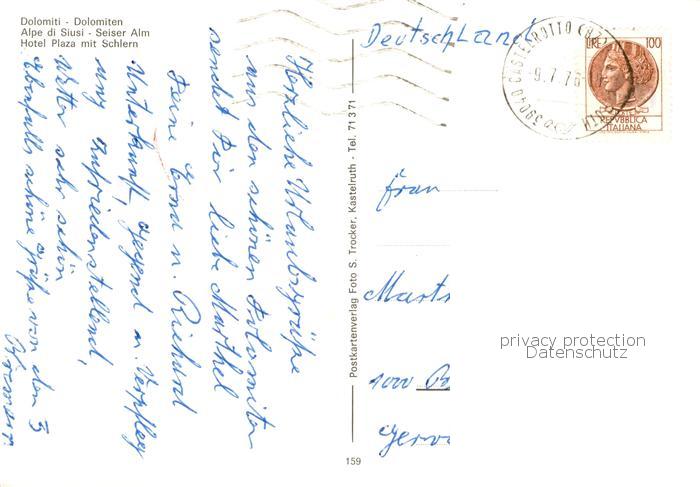 Dolomiti - Dolomiten
Alpe di Siusi - Seiser Alm
Hotel Plaza mit Schlern
Herzliche Urlaubsgrüße
aus den schönen Dolomiten
sendet Dir liebe Marthel
Deine Erna u. Richard
Unterkunft, Gegend u. Verpfleg
ung zufriedenstellend,
Wetter sehr schön
Ebenfalls schöne Grüße von den 3
Postkartenverlag Foto S. Trocker, Kastelruth - Tel. 71371
159
Deutschland
39040 CASTELROTTO (BZ)
9.7.76
LIRE 100
REPVBBLICA
ITALIANA
Frau
1000
privacy protection
Datenschutz